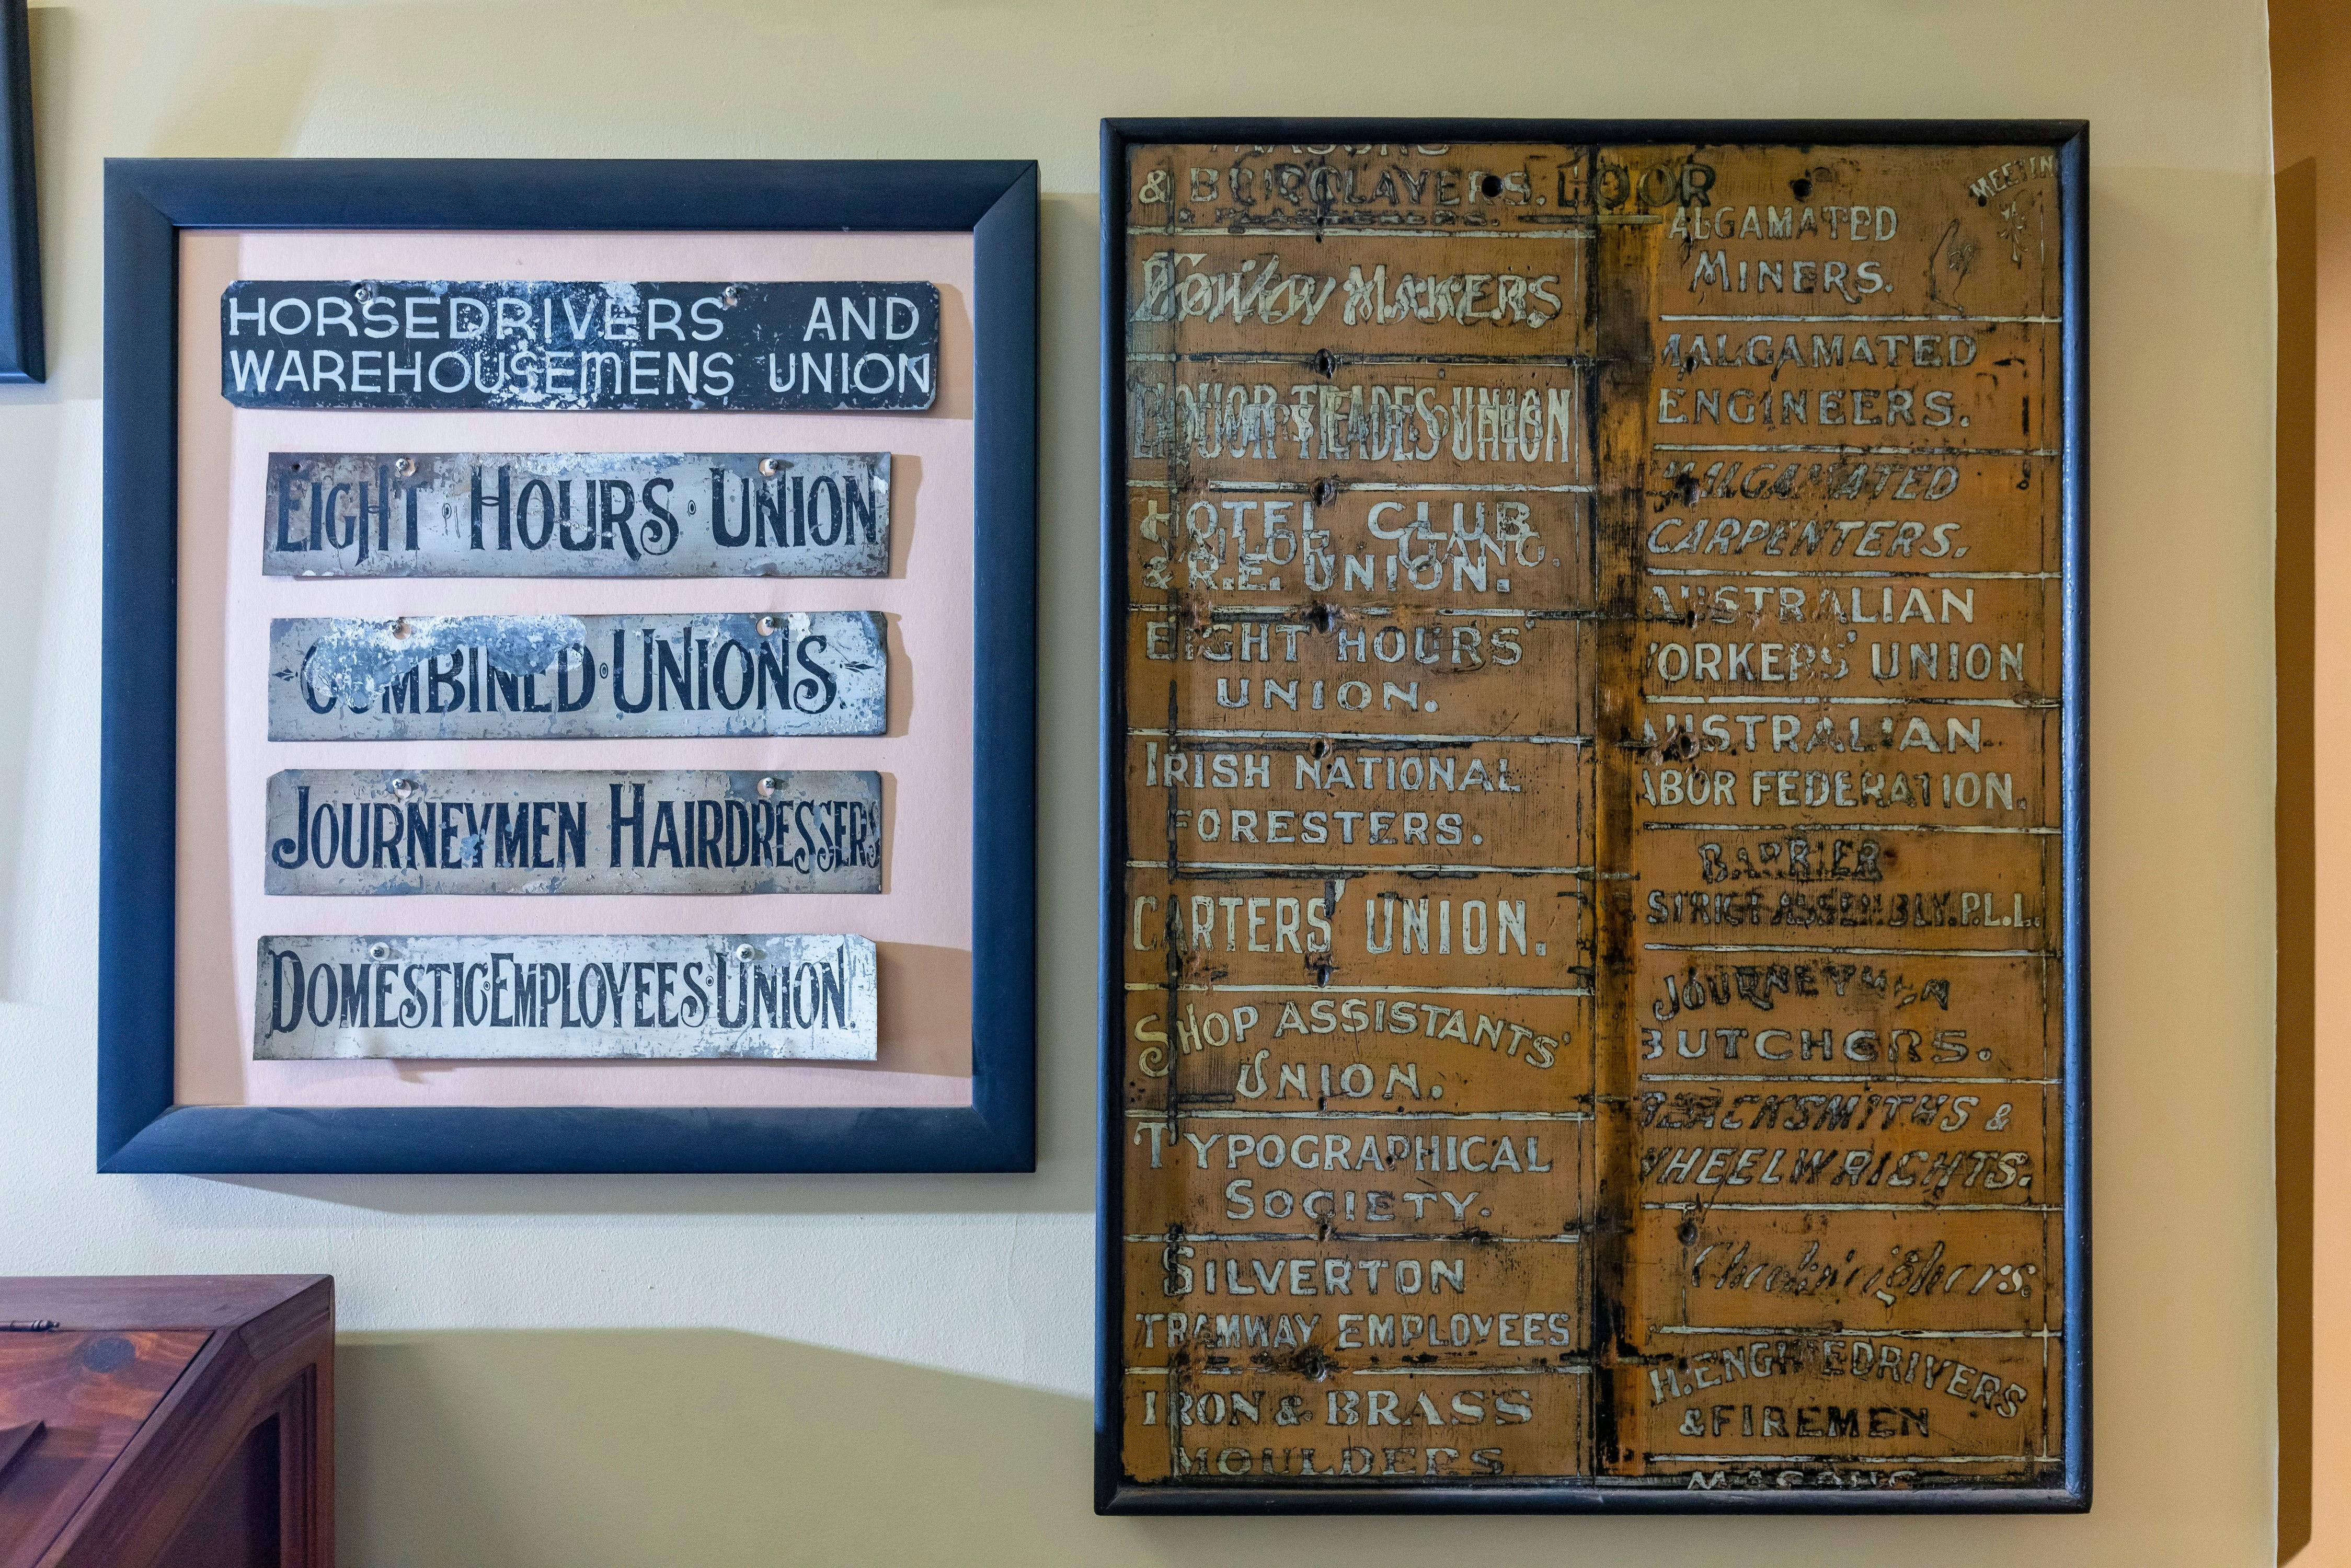 HORSEDRIVERS AND
WAREHOUSEMENS UNION
EIGHT HOURS UNION
COMBINED UNIONS
JOURNEYMEN HAIRDRESSERS
DOMESTIC EMPLOYEES UNION.
MASONS
&
MAKERS
LIQUOR TRADES UNION
HOTEL CLUB
& R.E. UNION.
EIGHT HOURS'
UNION.
IRISH NATIONAL
FORESTERS.
CARTERS' UNION.
SHOP ASSISTANTS'
UNION.
TYPOGRAPHICAL
SOCIETY.
SILVERTON
TRAMWAY EMPLOYEES
IRON & BRASS
MOULDERS
MEETIN
ALGAMATED
MINERS.
MALGAMATED
ENGINEERS.
MALGAMATED
CARPENTERS.
AUSTRALIAN
ORKERS' UNION
AUSTRALIAN
ABOR FEDERATION.
BARRIER
STRICT ASSEMBLY. P.L.L.
JOURNEYMEN
BUTCHERS.
BLACKSMITHS &
WHEELWRIGHTS.
Checkweighers.
ENGINEDRIVERS
& FIREMEN
MASONS